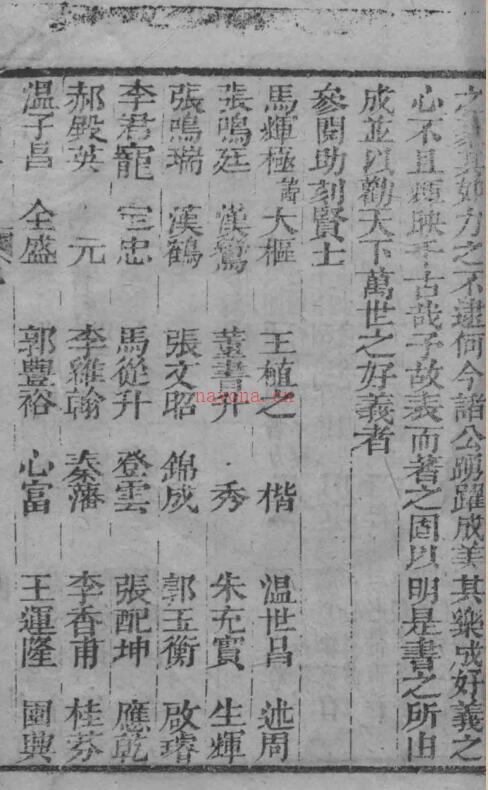 之 其如力之不逮何今諸公踴躍成美其樂成好義之
心不且 映千古哉予故表而著之固以明是書之所由
成並以勸天下萬世之好義者
參閱助刻賢士
馬輝極 大樞 王植之 楷 温世昌 述周
張鳴廷 漢鷺 董書升 秀 朱充實 生輝
張鳴瑞 漢鶴 張文昭 錦成 郭玉衡 啟璿
李君寵 忠 馬從升 登雲 張配坤 應乾
郝殿英 元 李維翰 秦藩 李香甫 桂芬
温子昌 全盛 郭豐裕 心富 王運隆 國興
nayona.cn